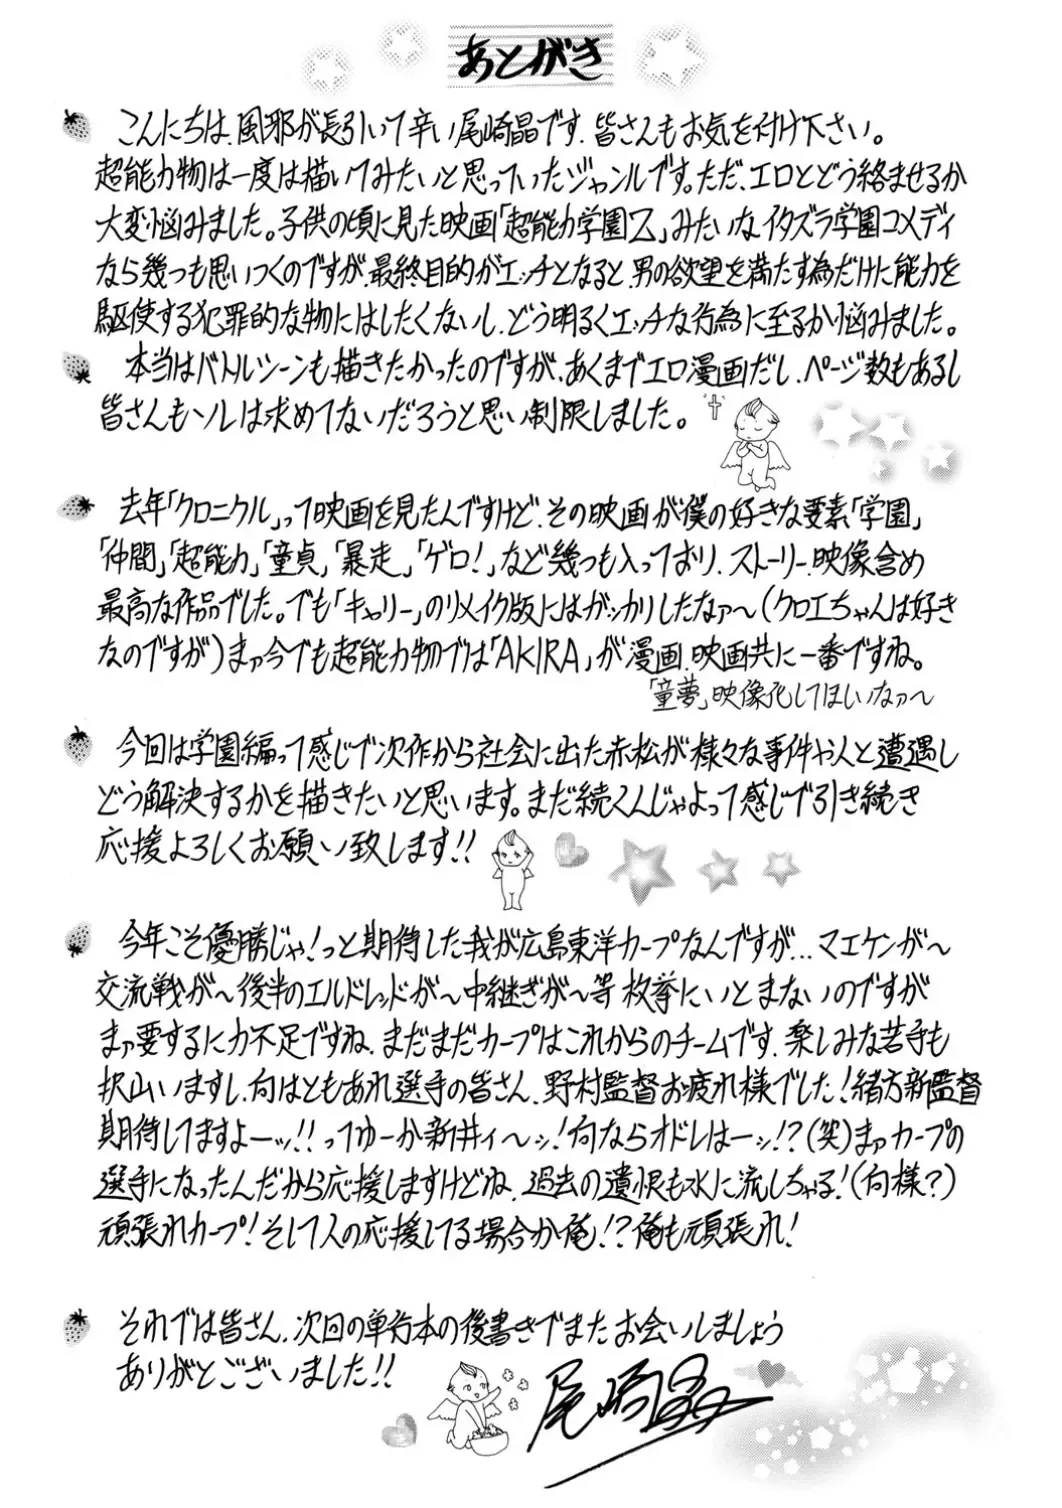 あとがき
こんにちは、風邪が長引いて辛い尾崎晶です、皆さんもお気を付け下さい。
超能力物は一度は描いてみたいと思っていたジャンルです。ただ、エロとどう絡ませるか
大変悩みました。子供の頃に見た映画「超能力学園Z」みたいなイタズラ学園コメディ
なら幾つも思いつくのですが、最終目的がエッチとなると、男の欲望を満たす為だけに能力を
駆使する犯罪的な物にはしたくないし、どう明るくエッチな行為に至るか悩みました。
本当はバトルシーンも描きたかったのですが、あくまでエロ漫画だし、ページ数もあるし
皆さんもソレは求めてないだろうと思い制限しました。
去年「クロニクル」って映画を見たんですけど、その映画が僕の好きな要素「学園」
「仲間」「超能力」「童貞」「暴走」「ゲロ!」など幾つも入っており、ストーリー、映像含め
最高な作品でした。でも「キャリー」のリメイク版にはガッカリしたなァ〜(クロエちゃんは好き
なのですが)まァ今でも超能力物では「AKIRA」が漫画、映画共に一番ですね。
「童夢」映像化してほしいなァ〜
今回は学園編って感じで次作から社会に出た赤松が様々な事件や人と遭遇し
どう解決するかを描きたいと思います。まだ続くんじゃよって感じで引き続き
応援よろしくお願い致します!!
今年こそ優勝じゃ!っと期待した我が広島東洋カープなんですが…マエケンが〜
交流戦が〜後半のエルドレッドが〜中継ぎが〜等枚挙にいとまないのですが
まァ要するに力不足ですね、まだまだカープはこれからのチームです、楽しみな若手も
沢山いますし、何はともあれ選手の皆さん、野村監督お疲れ様でした!緒方新監督
期待してますよーッ!!ってゆーか新井ィ〜ッ!何ならオドレはーッ!?(笑)まァカープの
選手になったんだから応援しますけどね、過去の遺恨も水に流しちゃる!(何様?)
頑張れカープ!そして人の応援してる場合か俺!?俺も頑張れ!
それでは皆さん、次回の単行本の後書きでまたお会いしましょう
ありがとございました!!
尾崎晶